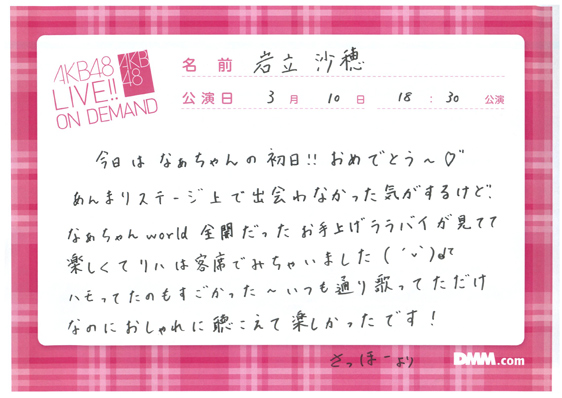 AKB48
LIVE!!
ON DEMAND
AKB
48
名前 岩立沙穂
公演日 3月 10日 18:30 公演
今日は なぁちゃんの 初日!! おめでとう〜♡
あんまりステージ上で出会わなかった気がするけど、
なぁちゃんworld 全開だった お手上げララバイが見てて
楽しくてリハは客席でみちゃいました
ハモってたのもすごかった〜いつも通り歌ってただけ
なのにおしゃれに聴こえて楽しかったです!
さっほーより
DMM.com